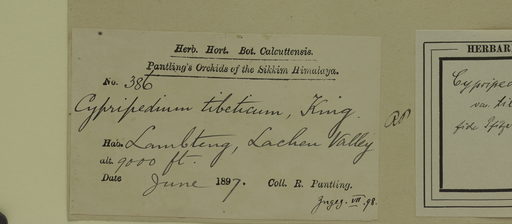 Herb. Hort. Bot. Calcuttensis.
Pantling's Orchids of the Sikkim Himalaya.
No. 386
Cypripedium tibeticum, King.
Hab. Lambteng, Lachen Valley
alt. 9000 ft.
Date June 1897. Coll. R. Pantling.
VII. 98.
HERBAR
Cypriped
var. tib
fide Pfitz